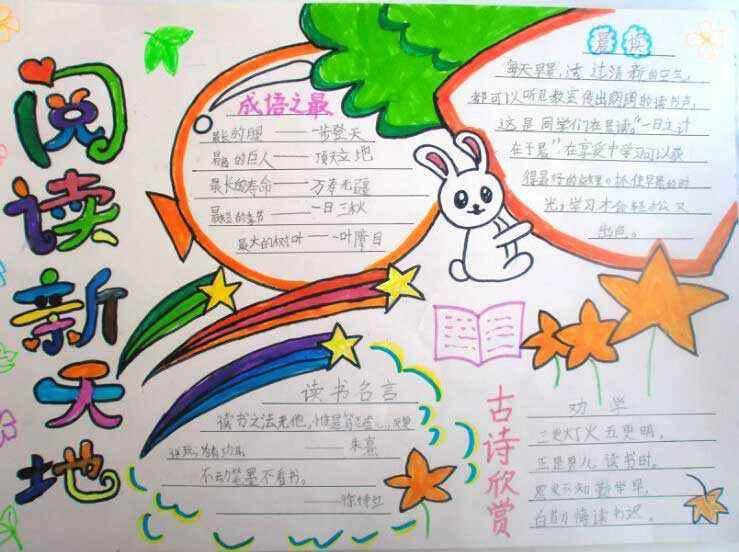 阅读新天地
成语之最
最长的腿——一步登天
最高的巨人——顶天立地
最长的寿命——万寿无疆
最短的季节——一日三秋
最大的树叶——一叶障目
晨读
每天早晨，
都可以听见教室传出朗朗的读书声，
这是同学们在晨读。"一日之计
在于晨"在享受中学习可以获
得最好的效果。抓住早晨的时
光，学习才会轻松又
出色。
读书名言
读书之法无他，惟是笃志虚心，反复
详玩，为有功耳
——朱熹
不动笔墨不看书。
——徐特立
古诗欣赏
劝学
三更灯火五更明，
正是男儿读书时。
黑发不知勤学早，
白首方悔读书迟。